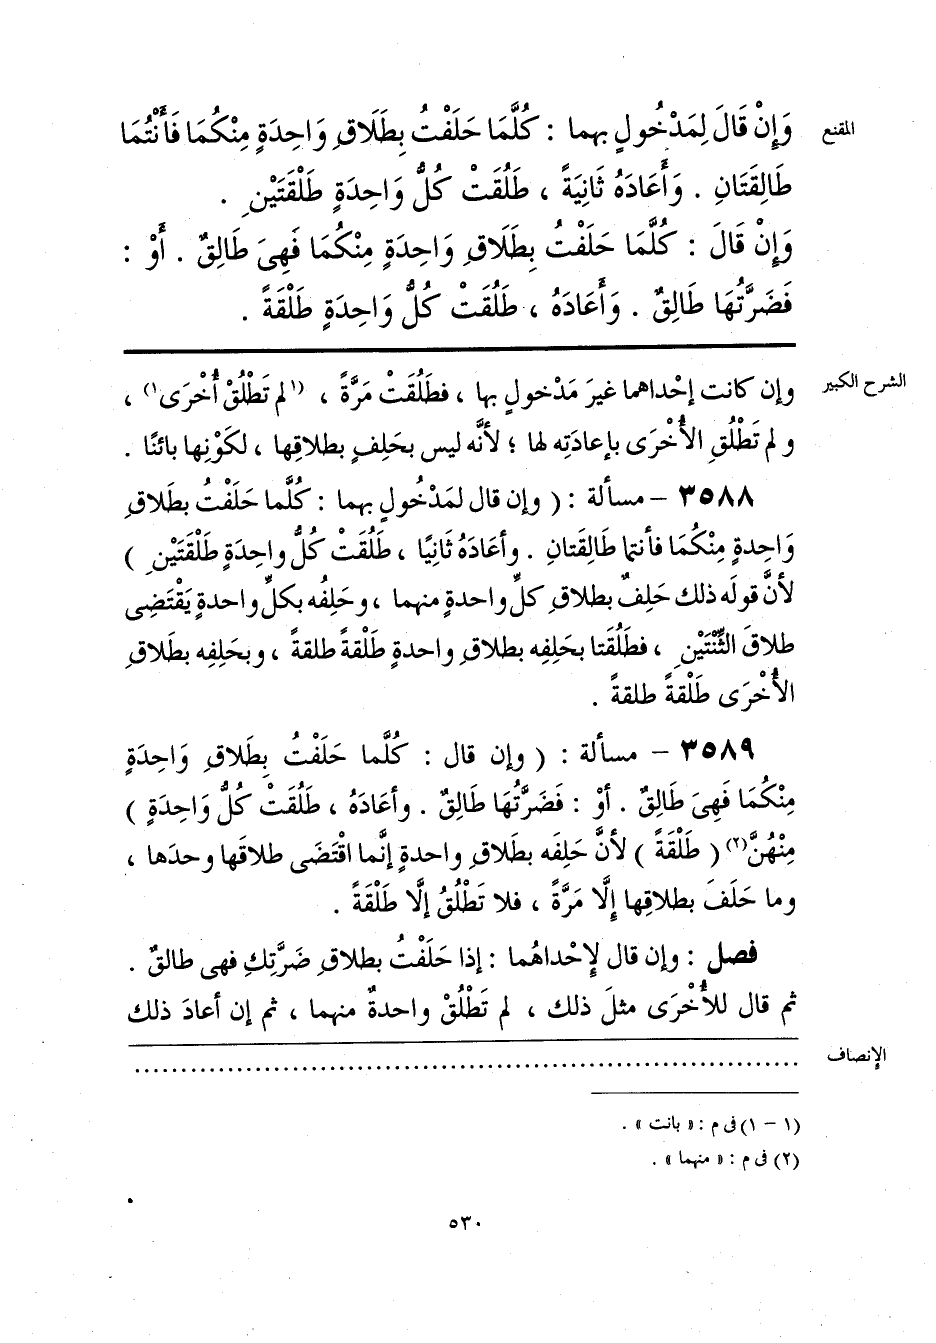 المقنع
وَإِنْ قَالَ لِمَدْخُولٍ بهما : كُلَّمَا حَلَفْتُ بِطَلَاقِ وَاحِدَةٍ مِنْكُمَا فَأَنْتُمَا
طَالِقَتَانِ . وَأَعَادَهُ ثَانِيَةً ، طَلُقَتْ كُلُّ وَاحِدَةٍ طَلْقَتَيْنِ .
وَإِنْ قَالَ : كُلَّمَا حَلَفْتُ بِطَلَاقِ وَاحِدَةٍ مِنْكُمَا فَهِىَ طَالِقٌ . أَوْ :
فَضَرَّتُهَا طَالِقٌ . وَأَعَادَهُ ، طَلُقَتْ كُلُّ وَاحِدَةٍ طَلْقَةً .
الشرح الكبير
وإن كانت إحْداهما غيرَ مَدْخولٍ بها ، فطَلُقَتْ مَرَّةً ، (١لم تَطْلُقْ أُخْرَى١) ،
ولم تَطْلُقِ الأُخْرَى بإعادَتِه لها ؛ لأنَّه ليس بحَلِفٍ بطلاقِها ، لكَوْنِها بائنًا .
٣٥٨٨ – مسألة : ( وإن قال لمَدْخُولٍ بهما : كُلَّما حَلَفْتُ بطَلاقِ
وَاحِدةٍ مِنْكُمَا فأنتما طَالِقَتانِ . وأعَادَهُ ثَانِيًا ، طَلُقَتْ كُلُّ واحِدةٍ طَلْقَتَيْنِ )
لأنَّ قولَه ذلك حَلِفٌ بطلاقِ كلِّ واحدةٍ منهما ، وحَلِفُه بكلِّ واحدةٍ يَقْتَضِى
طلاقَ الثِّنْتَيْنِ ، فطَلُقَتا بحَلِفِه بطلاقِ واحدةٍ طَلْقةً طلقةً ، وبحَلِفِه بطَلاقِ
الأُخْرَى طَلْقةً طلقةً .
٣٥٨٩ – مسألة : ( وإن قال : كُلَّما حَلَفْتُ بِطَلاقِ وَاحِدَةٍ
مِنْكُمَا فَهِىَ طَالِقٌ . أوْ : فَضَرَّتُهَا طَالِقٌ . وأعَادَهُ ، طَلُقَتْ كُلُّ وَاحِدَةٍ )
مِنْهُنَّ(٢) ( طَلْقَةً ) لأنَّ حَلِفَه بطَلاقِ واحدةٍ إنَّما اقْتَضَى طلاقَها وحدَها ،
وما حَلَفَ بطلاقِها إلَّا مَرَّةً ، فلا تَطْلُقُ إلَّا طَلْقَةً .
فصل : وإن قال لإِحْداهُما : إذا حَلَفْتُ بطلاقِ ضَرَّتِكِ فهى طالقٌ .
ثم قال للأُخْرَى مثلَ ذلك ، لم تَطْلُقْ واحدةٌ منهما ، ثم إن أعادَ ذلك
الإنصاف
......................................................................
(١ – ١) فى م : « بانت » .
(٢) فى م : « منهما » .
٥٣٠